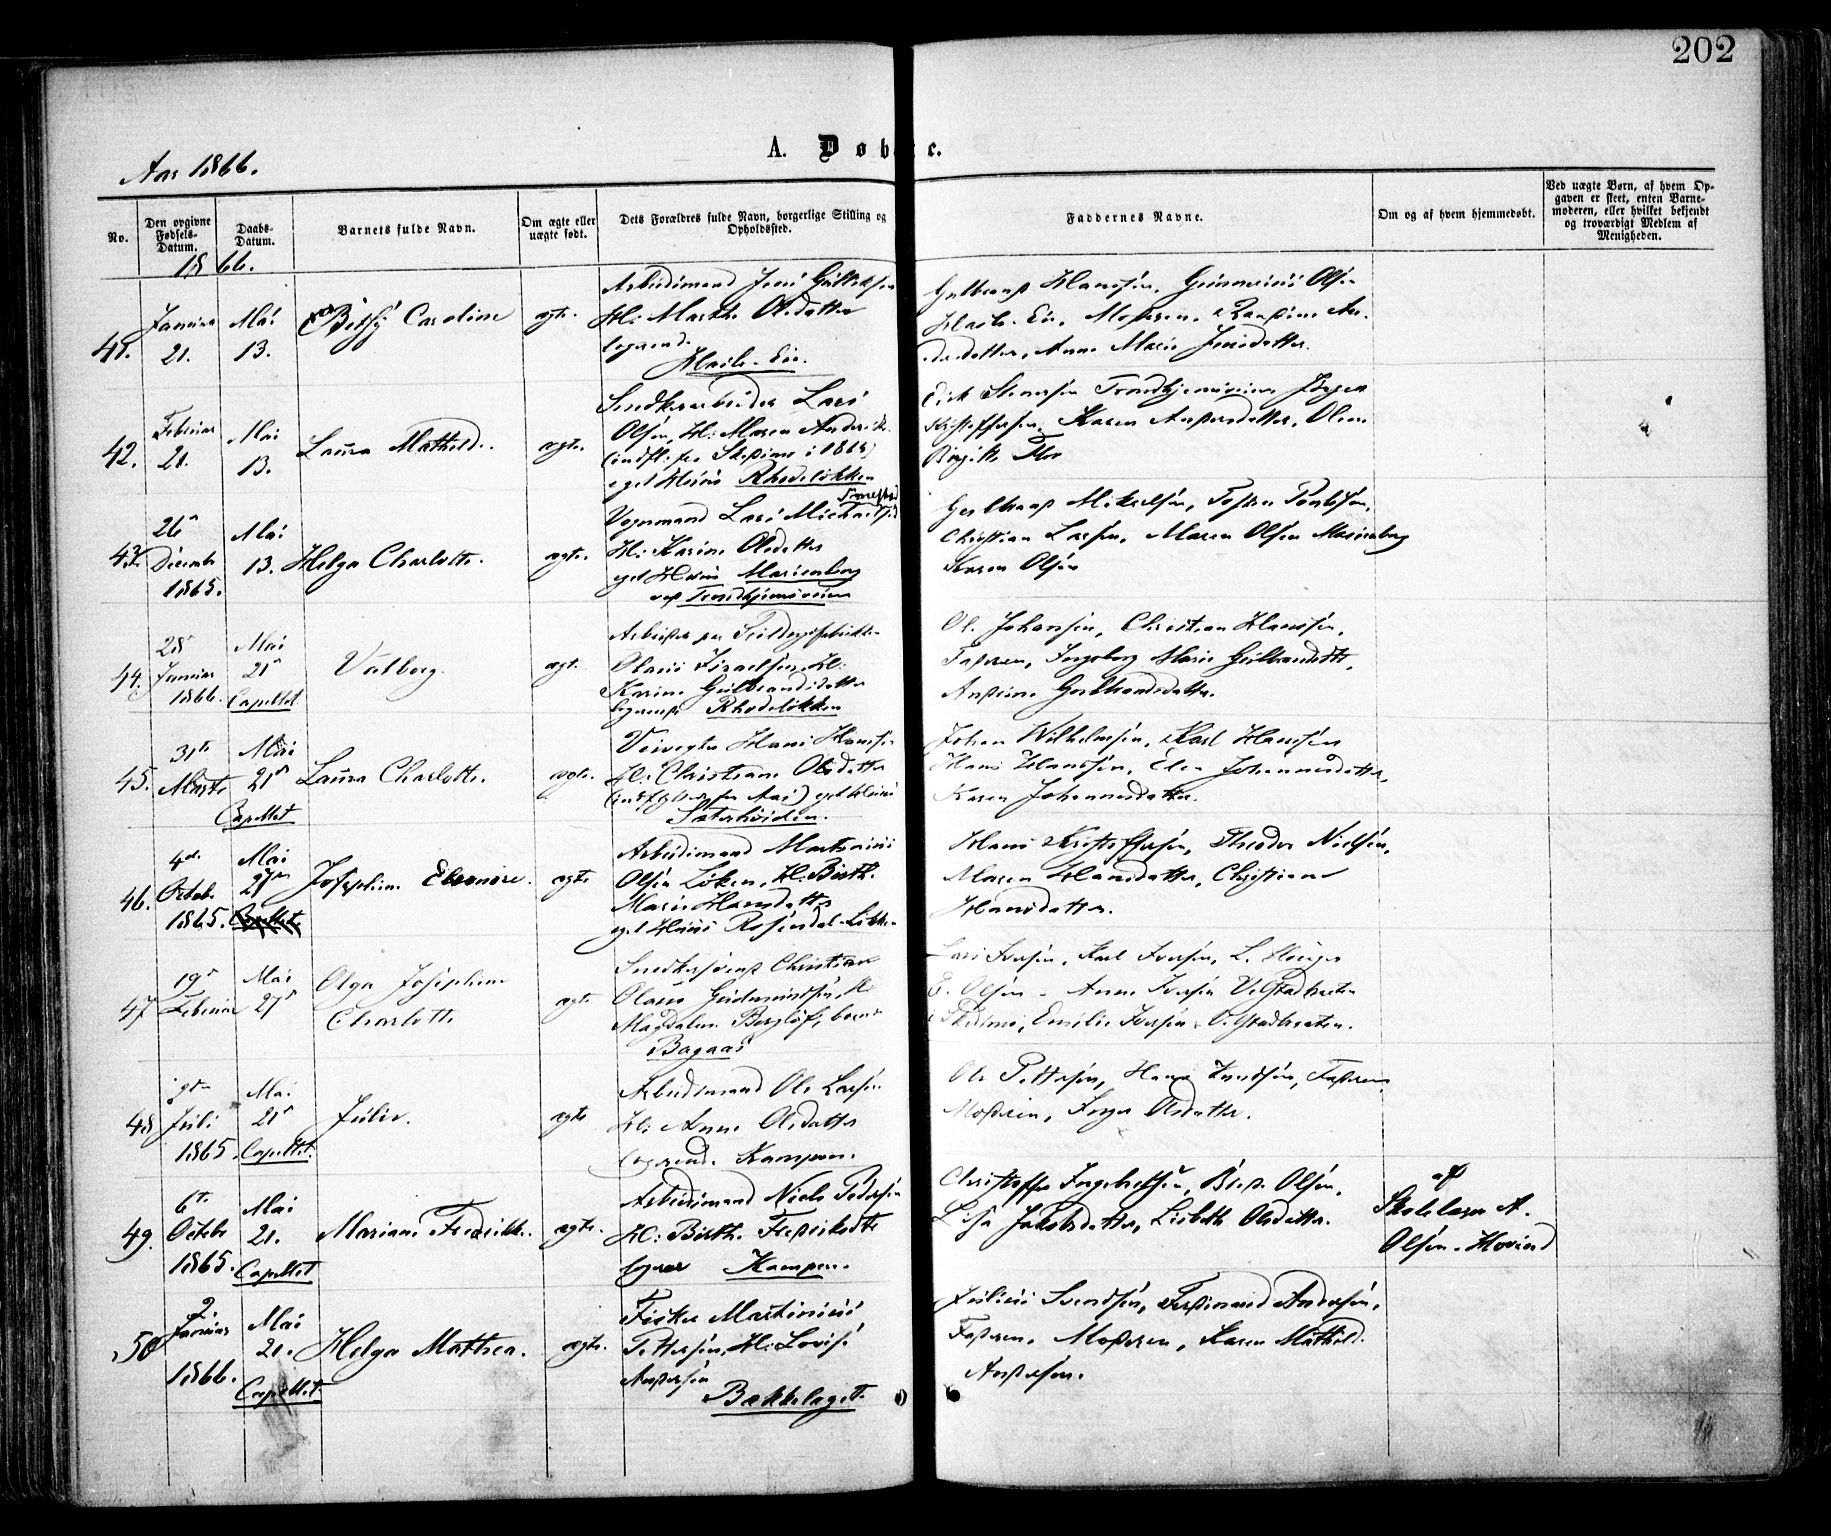 202
A. Døbte.
Aar 1866.
No.
Den opgivne Fødsels-Datum.
Daabs-Datum.
Barnets fulde Navn.
Om ægte eller uægte født.
Dets Forældres fulde Navn, borgerlige Stilling og Opholdssted.
Faddernes Navne.
Om og af hvem hjemmedøbt.
Ved uægte Børn, af hvem Op-
gaven er skeet, enten Barne-
moderen, eller hvilket bekjendt
og troværdigt Medlem af
Menigheden.
1866.
41.
Januar
21.
Mai
13.
Betsÿ Caroline
ægte.
Arbeidsmand Jens
H: Marthe Olsdatter
logerende
Hasle-Eie.
Gulbrand Hansen, Gunnerius Olsen
Hasle-Eie, Moderen,
Anne Marie Jensdatter.
42.
Februar
21.
Mai
13.
Laura Mathilde.
ægte.
Snedkerarbeider Lars
Olsen, H: Maren
eget Huus Rhodeløkken
Stenersen Trondhjemsveien Jørgen
Kristoffersen, Karen Andersdatter,
Birgitte
43.
26de
Decembr
1865.
Mai
13.
Helga Charlotte.
ægte.
Vognmand Lars Michaelsen
H: Karine Olsdatter
eget Huus Marienborg
ved Trondhjemsveien
Gulbrand Mikkelsen,
Christian Larsen, Maren Olsen Marienborg
Karen Olsen
44.
28de
Januar
1866.
Mai
21de
Capellet
Valborg.
ægte.
Arbeider paa
Olaus Israelsen, H:
Karine Gulbrandsdatter
logerende Rhodeløkken
Ole Johansen, Christian Hansen,
Fadren, Ingeborg Marie Gulbrandsdtr,
Andrine Gulbrandsdatter.
45.
31te
Marts
Mai
21de
Capellet
Laura Charlotte.
ægte.
Veivogter Hans Hansen
H: Christiane Olsdatter
eget Huus
Johan Wilhelmsen, Karl Hansen
Hans Hansen, Elen Johannesdatter,
Karen Johannesdatter.
46.
4de
Octobr
1865.
Mai
27de
Josephine Eleonore.
ægte
Arbeidsmand Martinius
Olsen Løken, H: Birthe
Marie Hansdatter
eget Huus Rosendal-Løkken
Hans Kristoffersen, Theodor Nielsen,
Maren Hansdatter, Christiane
Hansdatter.
47
19de
Februar
Mai
27de
Olga Josephine
Charlotte
ægte
Snedkersvend Christian
Olaus Gudmundsen, H:
Magdalene Berglöf, boende
Bagaas
Lars Iversen, Karl Iversen, L.
Olsen - Anne Iversen
Emilie Iversen
48
9de
Juli
1865
Mai
21de
Capellet.
Julie.
ægte
Arbeidsmand Ole Larsen
H: Anne Olsdatter
logerende Kampen.
Ole Pettersen, Hans Knudsen, Fadren
Moderen, Olsdatter.
49.
6te
Octobr
1865.
Mai
21.
Capellet
Mariane Fredrikke.
ægte.
Arbeidsmand Niels Pedersen
H: Birthe Frederiksdtr
logerer Kampen.
Christoffer Ingebretsen, Olsen,
Lisa Jakobsdatter, Lisbeth Olsdatter.
af
Skolelærer A.
Olsen-Hovind
50
2.
Januar
1866.
Mai
21.
Capellet
Helga Mathea.
ægte.
Fisker Martinius
Pettersen, H: Lovise
Andersen
Bækkelaget.
Julius Svendsen, Ferdinand Andersen,
Fadren, Moderen, Karen Mathilde
Andersen.